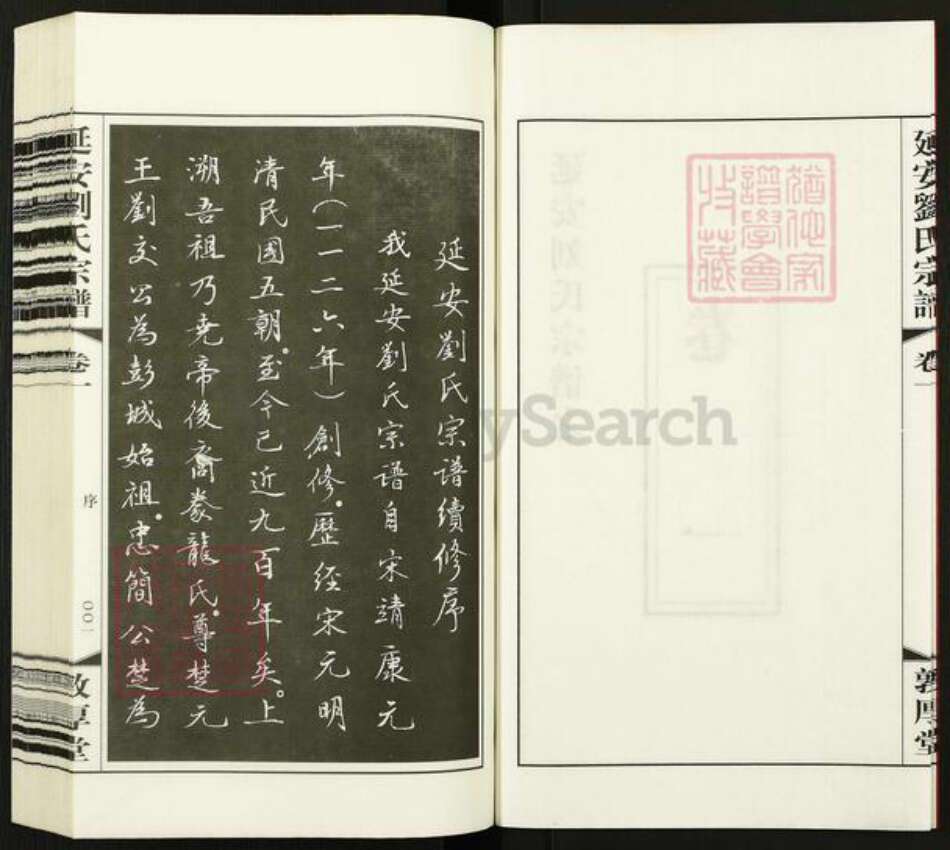 延安劉氏宗譜
卷一
敦厚堂
猶他家
譜學會
收藏
延安刘氏宗谱
卷一
MySearch
延安劉氏宗譜續修序
我延安劉氏宗譜自宋靖康元
年(一一二六年)創修。歷經宋元明
清民國五朝。至今已近九百年矣。上
溯吾祖乃堯帝後裔豢龍氏。尊楚元
王劉交公為彭城始祖。忠簡公楚為
延安劉氏宗譜
卷一
序
〇〇一
敦厚堂